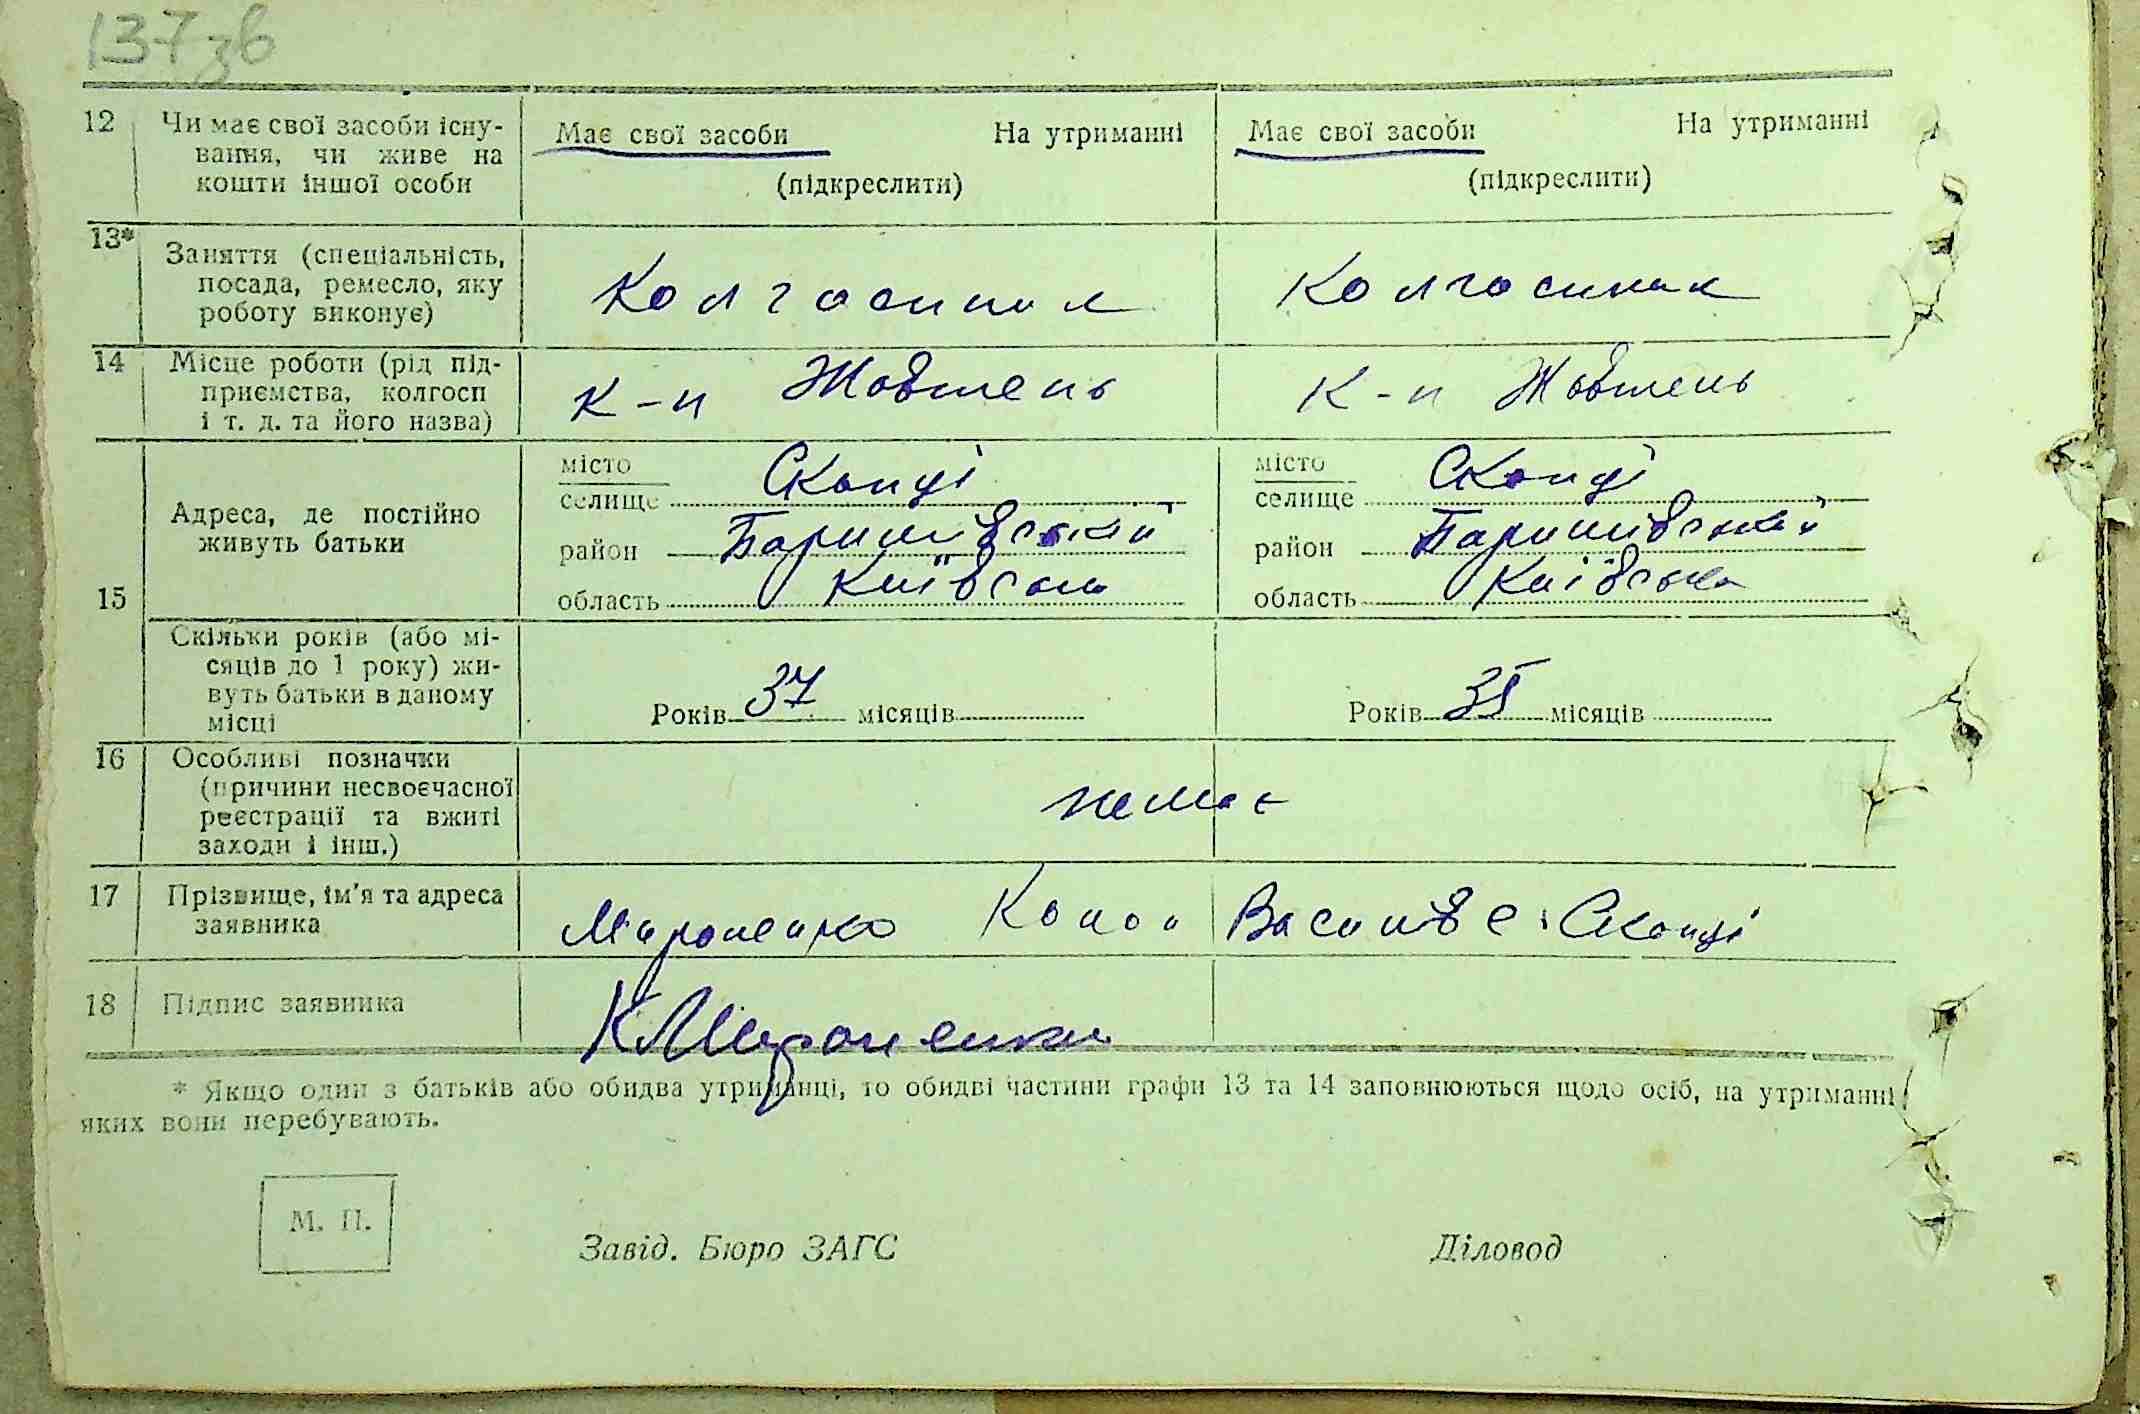 137зв
12 Чи має свої засоби існу- Має свої засоби На утриманні Має свої засоби На утриманні
вання, чи живе на
кошти іншої особи (підкреслити) (підкреслити)
13* Заняття (спеціальність,
посада, ремесло, яку Колгоспник Колгоспник
роботу виконує)
14 Місце роботи (рід під-
приємства, колгосп к-п Жовтень к-п Жовтень
і т. д. та його назва)
15 Адреса, де постійно
живуть батьки
місто
селище Скопці
район Баришівський
область Київська
місто
селище Скопці
район Баришівський
область Київська
Скільки років (або мі-
сяців до 1 року) жи-
вуть батьки в даному
місці Років 37 місяців Років 35 місяців
16 Особливі позначки
(причини несвоєчасної
реєстрації та вжиті немає
заходи і інш.)
17 Прізвище, ім'я та адреса
заявника Мироненко Конон с. Скопці
18 Підпис заявника КМироненко
* Якщо один з батьків або обидва утриманці, то обидві частини графи 13 та 14 заповнюються щодо осіб, на утриманні
яких вони перебувають.
М. П.
Завід. Бюро ЗАГС Діловод